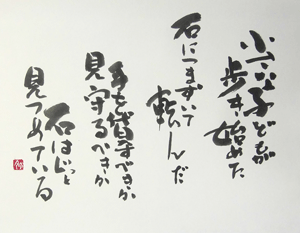 小さな子どもが
歩き始めた
石につまずいて
転んだ
手を貸すべきか
見守るべきか
石はじっと
見つめている